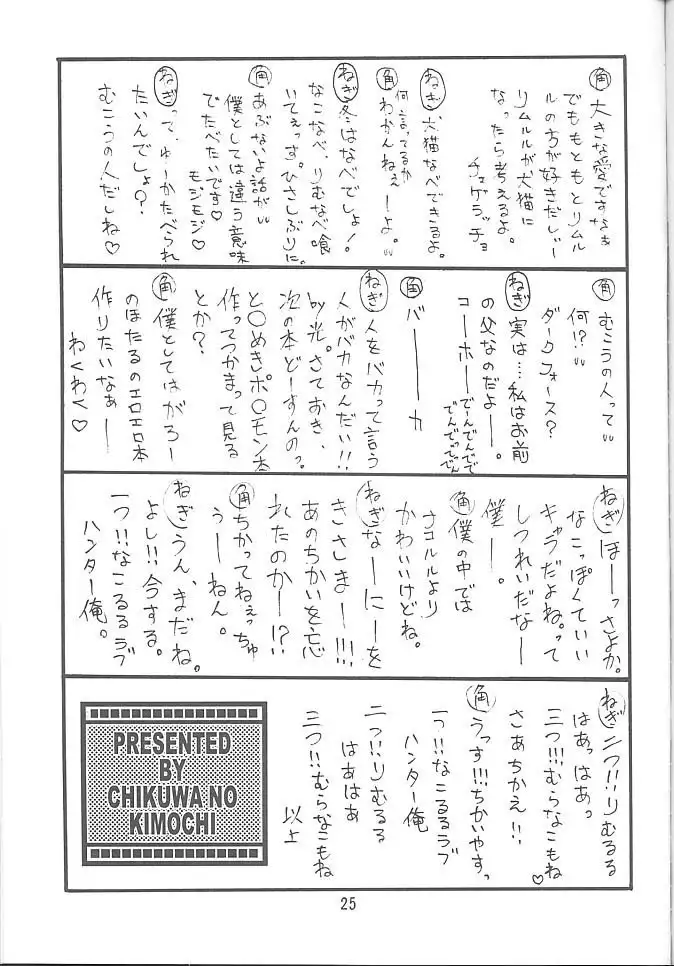 角 大きな愛ですなぁ
でももともとリムル
ルの方が好きだしー
リムルルが犬猫に
なったら考えるよ。
チェゲラッチョ
ねぎ 犬猫なべできるよ。
角 何言ってるか
わかんねぇーよ。
ねぎ 冬はなべでしょ!
なこなべ、りむなべ喰
いてえっす。ひさしぶりに。
角 あぶないよ話が
僕としては違う意味
でたべたいです♡
モジモジ♡
ねぎ って、ゆーかたべられ
たいんでしょ?
むこうの人だしね♡
角 むこうの人って
何!?
ダークフォース?
ねぎ 実は…私はお前
の父なのだよー。
コーホー でーんでんでんで
でんでっでんでん
角 バーーーカ
ねぎ 人をバカって言う
人がバカなんだい!!
by光。さておき、
次の本どーすんの?
と〇めきポ〇モン本
作ってつかまって見る
とか?
角 僕としてはがろー
のほたるのエロエロ本
作りたいなぁー
わくわく♡
ねぎ ほーっさよか。
なこっぽくていい
キャラだよね。って
しつれいだなー
僕ー。
角 僕の中では
ナコルルより
かわいいけどね。
ねぎ なーにーを
きさしまー!!!
あのちかいを忘
れたのかー!?
角 ちかってねぇっちゅ
うーねん。
ねぎ うん、まだね。
よし!!今する。
一つ!!なこるるラブ
ハンター俺。
ねぎ 二つ!!りむるる
はあっはあっ
三つ!!!むらなこもね♡
さあちかえ!!
角 うっす!!!ちかいやすっ
一っ!!なこるるラブ
ハンター俺
二っ!!りむるる
はあはあ
三つ!!むらなこもね
以上
PRESENTED
BY
CHIKUWA NO
KIMOCHI
25